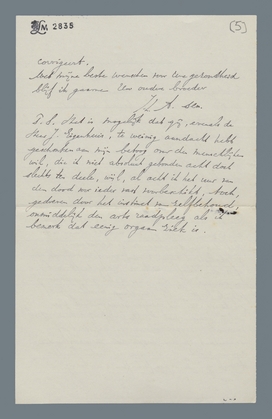 M 2835
(5)
corrigeert.
Met mijne beste wenschen voor Uw gezondheid
blijf ik gaarne Uw oudere broeder
J. A. sen.
P.S. Het is mogelijk dat gij, evenals de
Heer J. te weinig aandacht hebt
geschonken aan mijn betoog over den menschelijken
wil, die ik niet absoluut gebonden acht doch
slechts ten deele, wijl, al acht ik het uur van
den dood voor ieder mensch, toch,
gedreven door het instinct van zelfbehoud,
onmiddellijk den arts raadpleeg als ik
bemerk dat eenig orgaan ziek is.